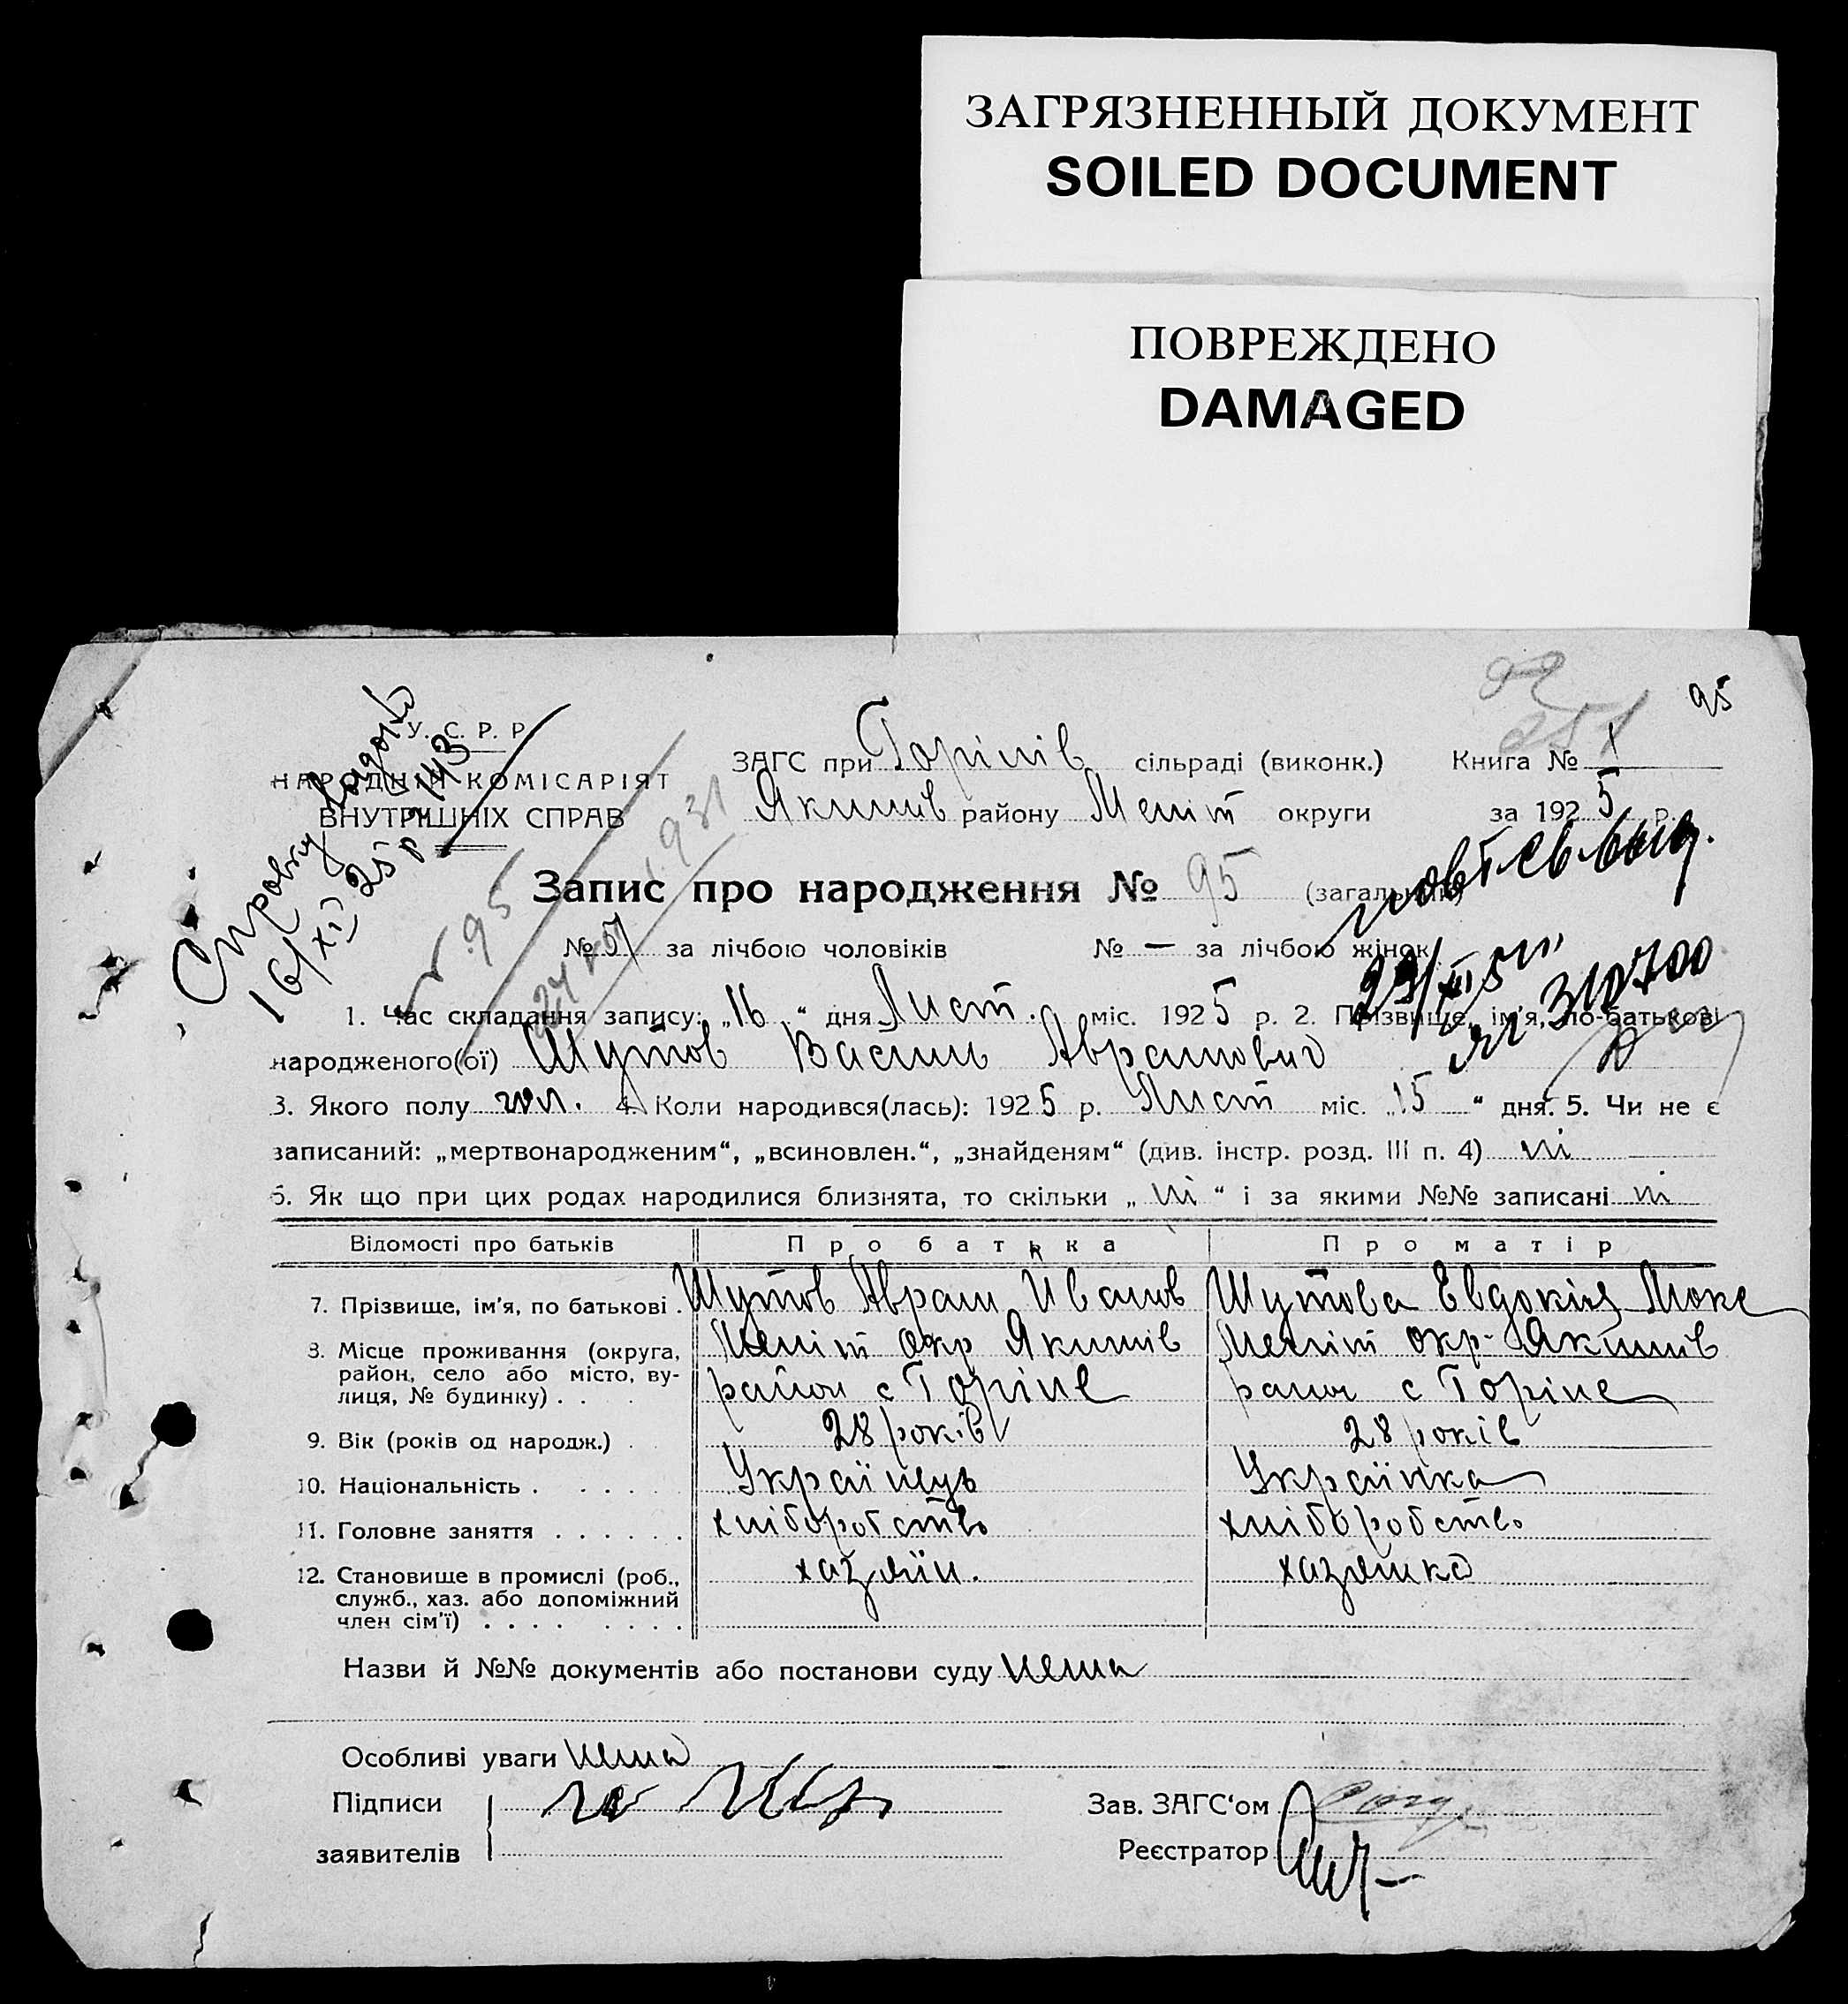 ЗАГРЯЗНЕННЫЙ ДОКУМЕНТ
SOILED DOCUMENT
ПОВРЕЖДЕНО
DAMAGED
95
У. С. Р. Р.
НАРОДНІЙ КОМІСАРІЯТ
ВНУТРІШНІХ СПРАВ
Справку
16/XI 25 р № 143
ЗАГС при Горілів сільраді (виконк.) Книга № 1
Якимів району Меліт округи за 1925 р.
Запис про народження № 95 (загальний)
повт св выд.
№ 51 за лічбою чоловіків № — за лічбою жінок
1. Час складання запису: „16“ дня Лист. міс. 1925 р. 2. Прізвище, ім'я, по-батькові
народженого(ої) Шутов Василь Аврамович
3. Якого полу чол. 4. Коли народився(лась): 1925 р. Лист міс. „15“ дня. 5. Чи не є
записаний: „мертвонародженим“, „всиновлен.“, „знайденям“ (див. інстр. розд. III п. 4) ні
6. Як що при цих родах народилися близнята, то скільки „ні“ і за якими №№ записані ні
Відомості про батьків Про батька Про матір
7. Прізвище, ім'я, по батькові. Шутов Аврам Иванов Шутова Евдокія Моке
8. Місце проживання (округа, район, село або місто, вулиця, № будинку) . . Меліт окр Якимів Меліт окр. Якимів
район с Горіле район с Горіле
9. Вік (років од народж.) . 28 років 28 років
10. Національність . . . . . Українець Українка
11. Головне заняття . . . . . . хліборобство хліборобство
12. Становище в промислі (роб., служб., хаз. або допоміжний член сім'ї) . . . . . . . . хазяїн. хазяйка
Назви й №№ документів або постанови суду нема
Особливі уваги нема
Підписи
заявителів
Зав. ЗАГС'ом
Реєстратор